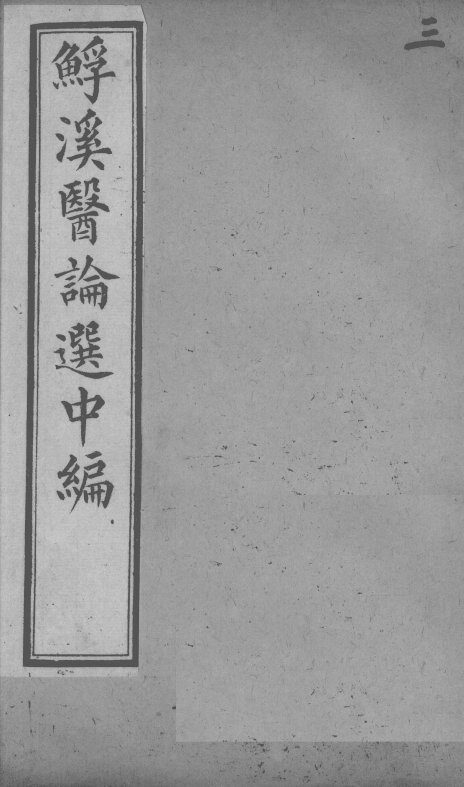 三
鯚溪醫論選中編